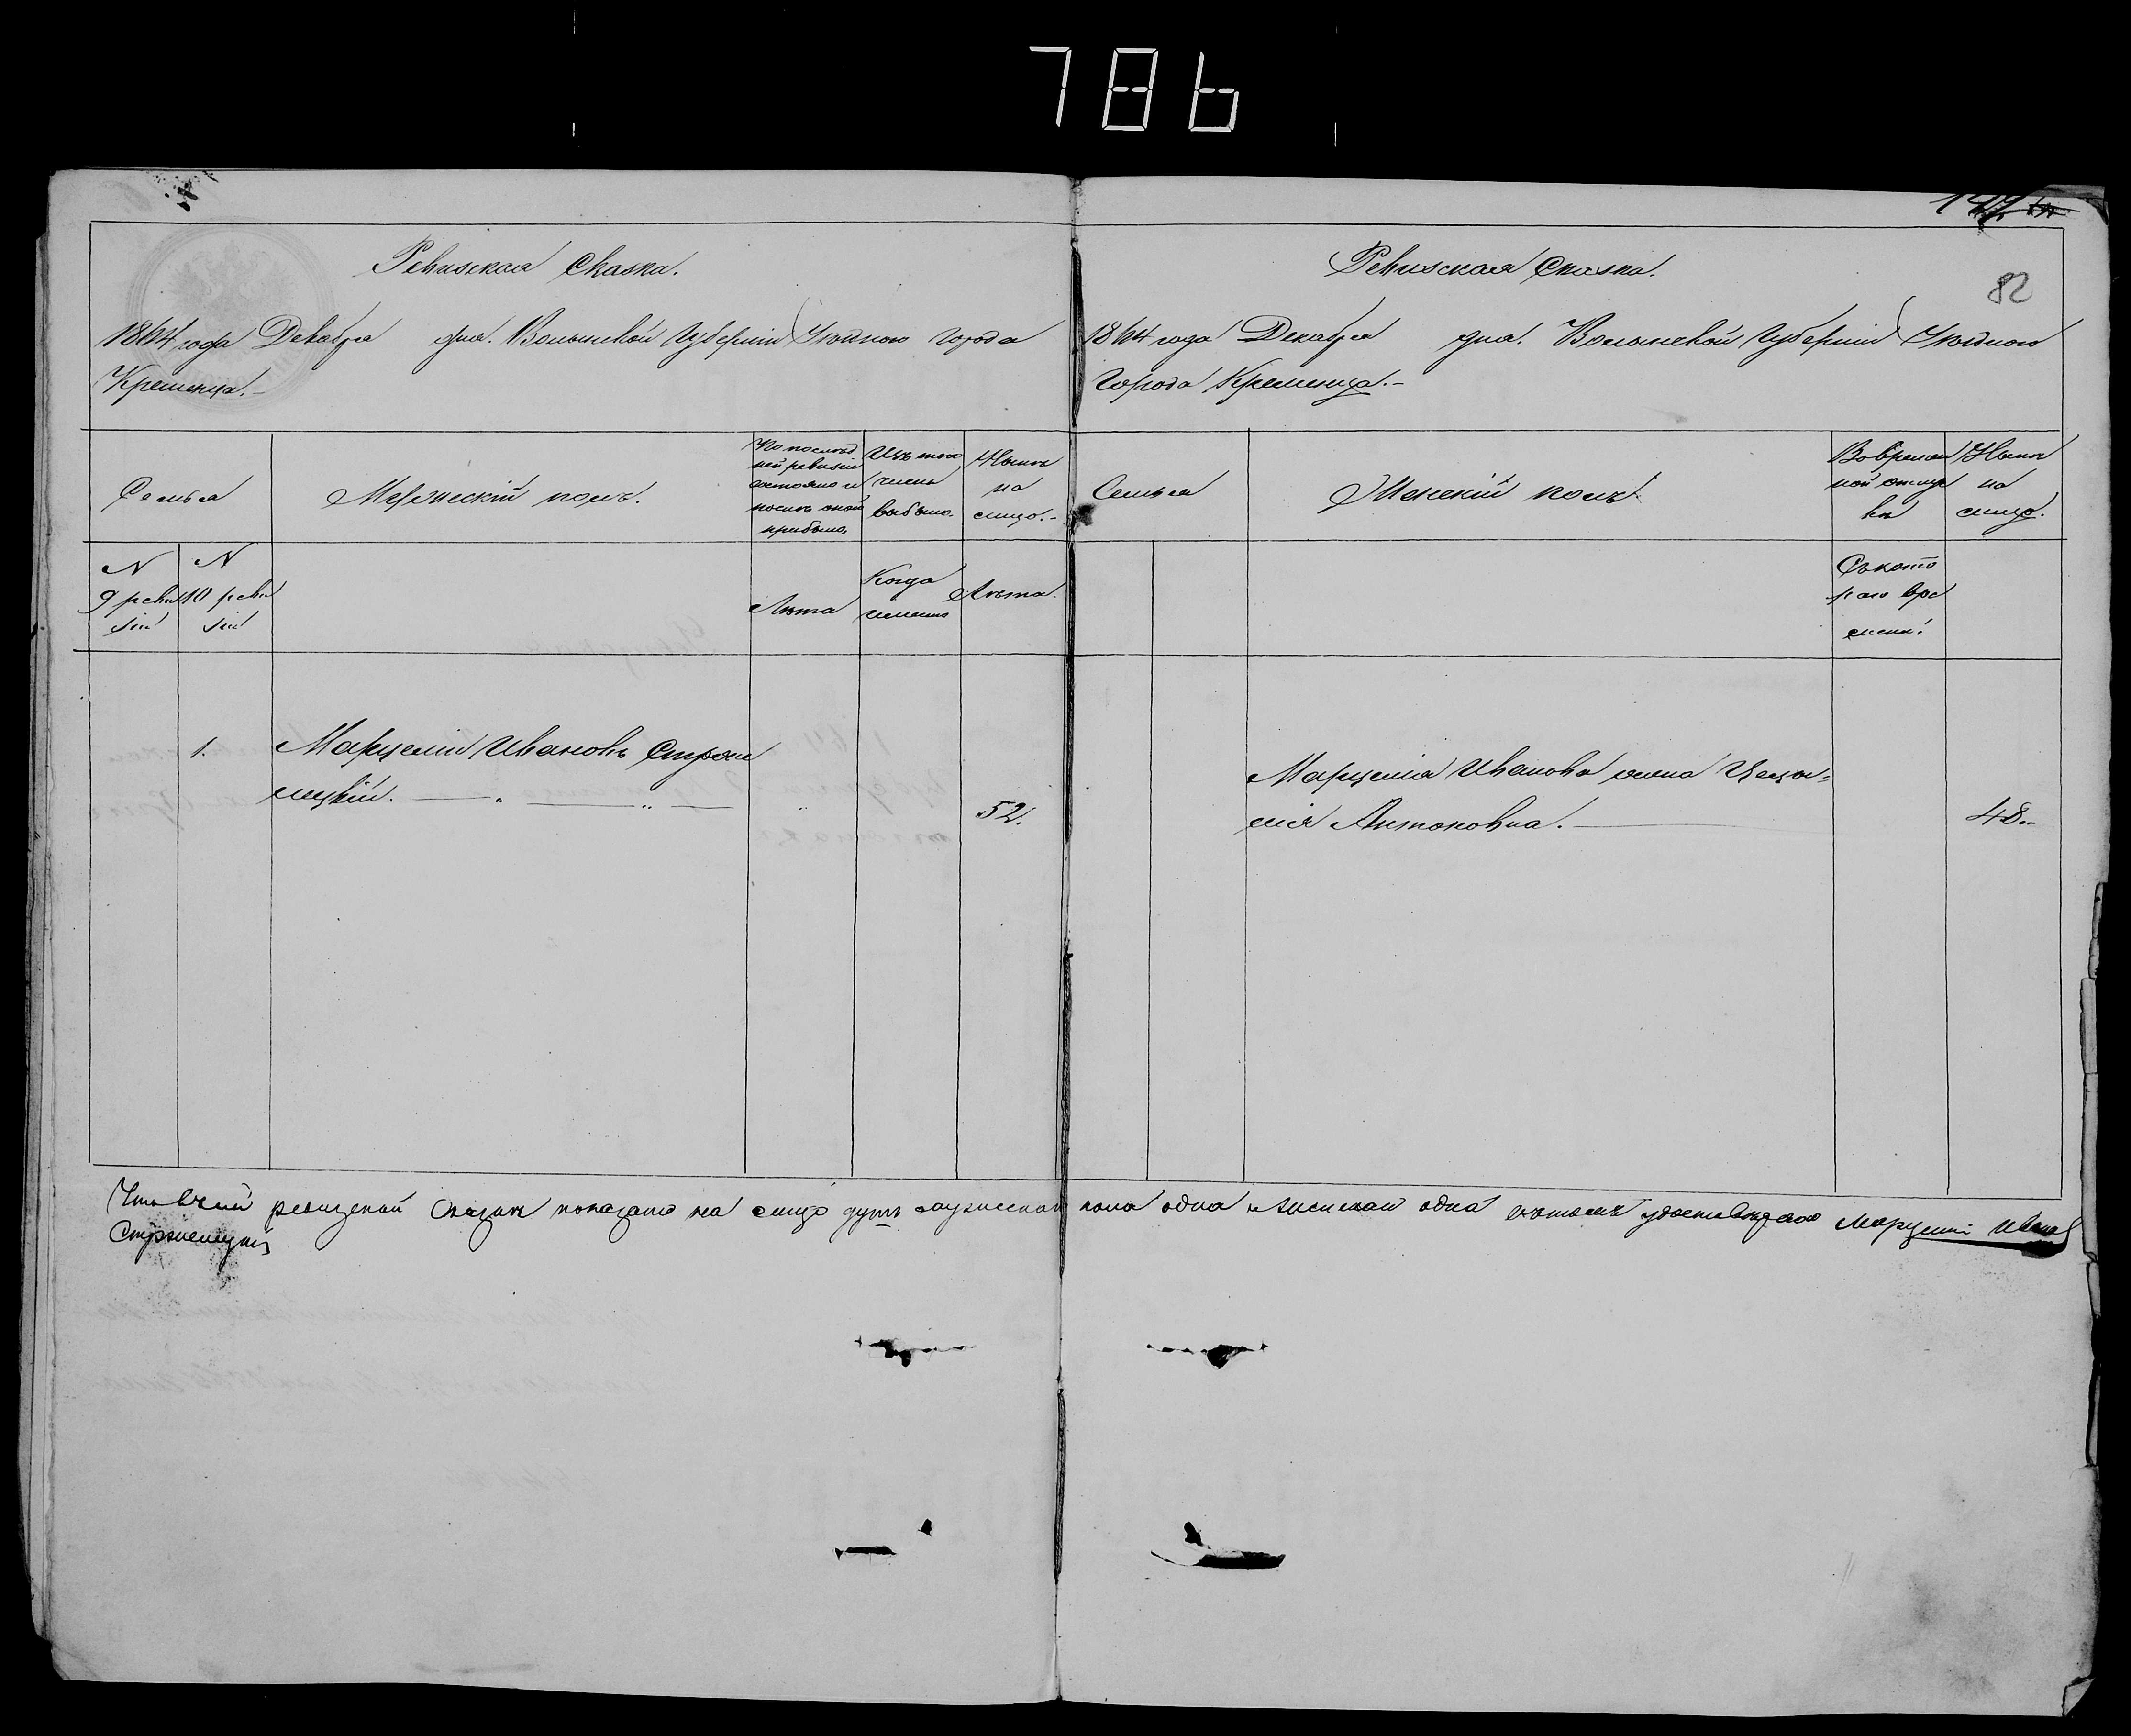 786
82
Ревизская Сказка.
1864 года Декабря дня. Волынской Губерніи Уѣзднаго города
Кременца.-
Семья
Мужескій полъ.
По послѣд
ней ревизіи
состояло и
послѣ оной
прибыло.
Изъ того
числа
выбыло.
Нынѣ
на
лицо.-
N
9 реви
зіи
N
10 реви
зіи
Лѣта
Когда
именно
Лѣта.
1. Марцелій Ивановъ Стрже
мецкій. 52.
Ревизская Сказка.
1864 года Декабря дня. Волынской Губерніи Уѣзднаго
Города Кременца.-
Семья
Женскій полъ.
Во времен
ной отлуч
кѣ
Нынѣ
на
лицо.
Съ кото
раго вре
мени.
Марцелія Иванова жена
Антоновна. 48..
Что въ сей ревизской сказкѣ показано на лицо душъ мужеска пола одна и женска одна въ томъ удостовѣряю Марцелій Иванов